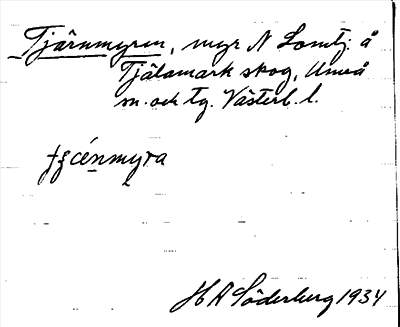 Tjärnmyren, myr N Lomtj. å
Tjälamark skog, Umeå
sn. och tg. Västerb. l.
H A Söderberg 1934